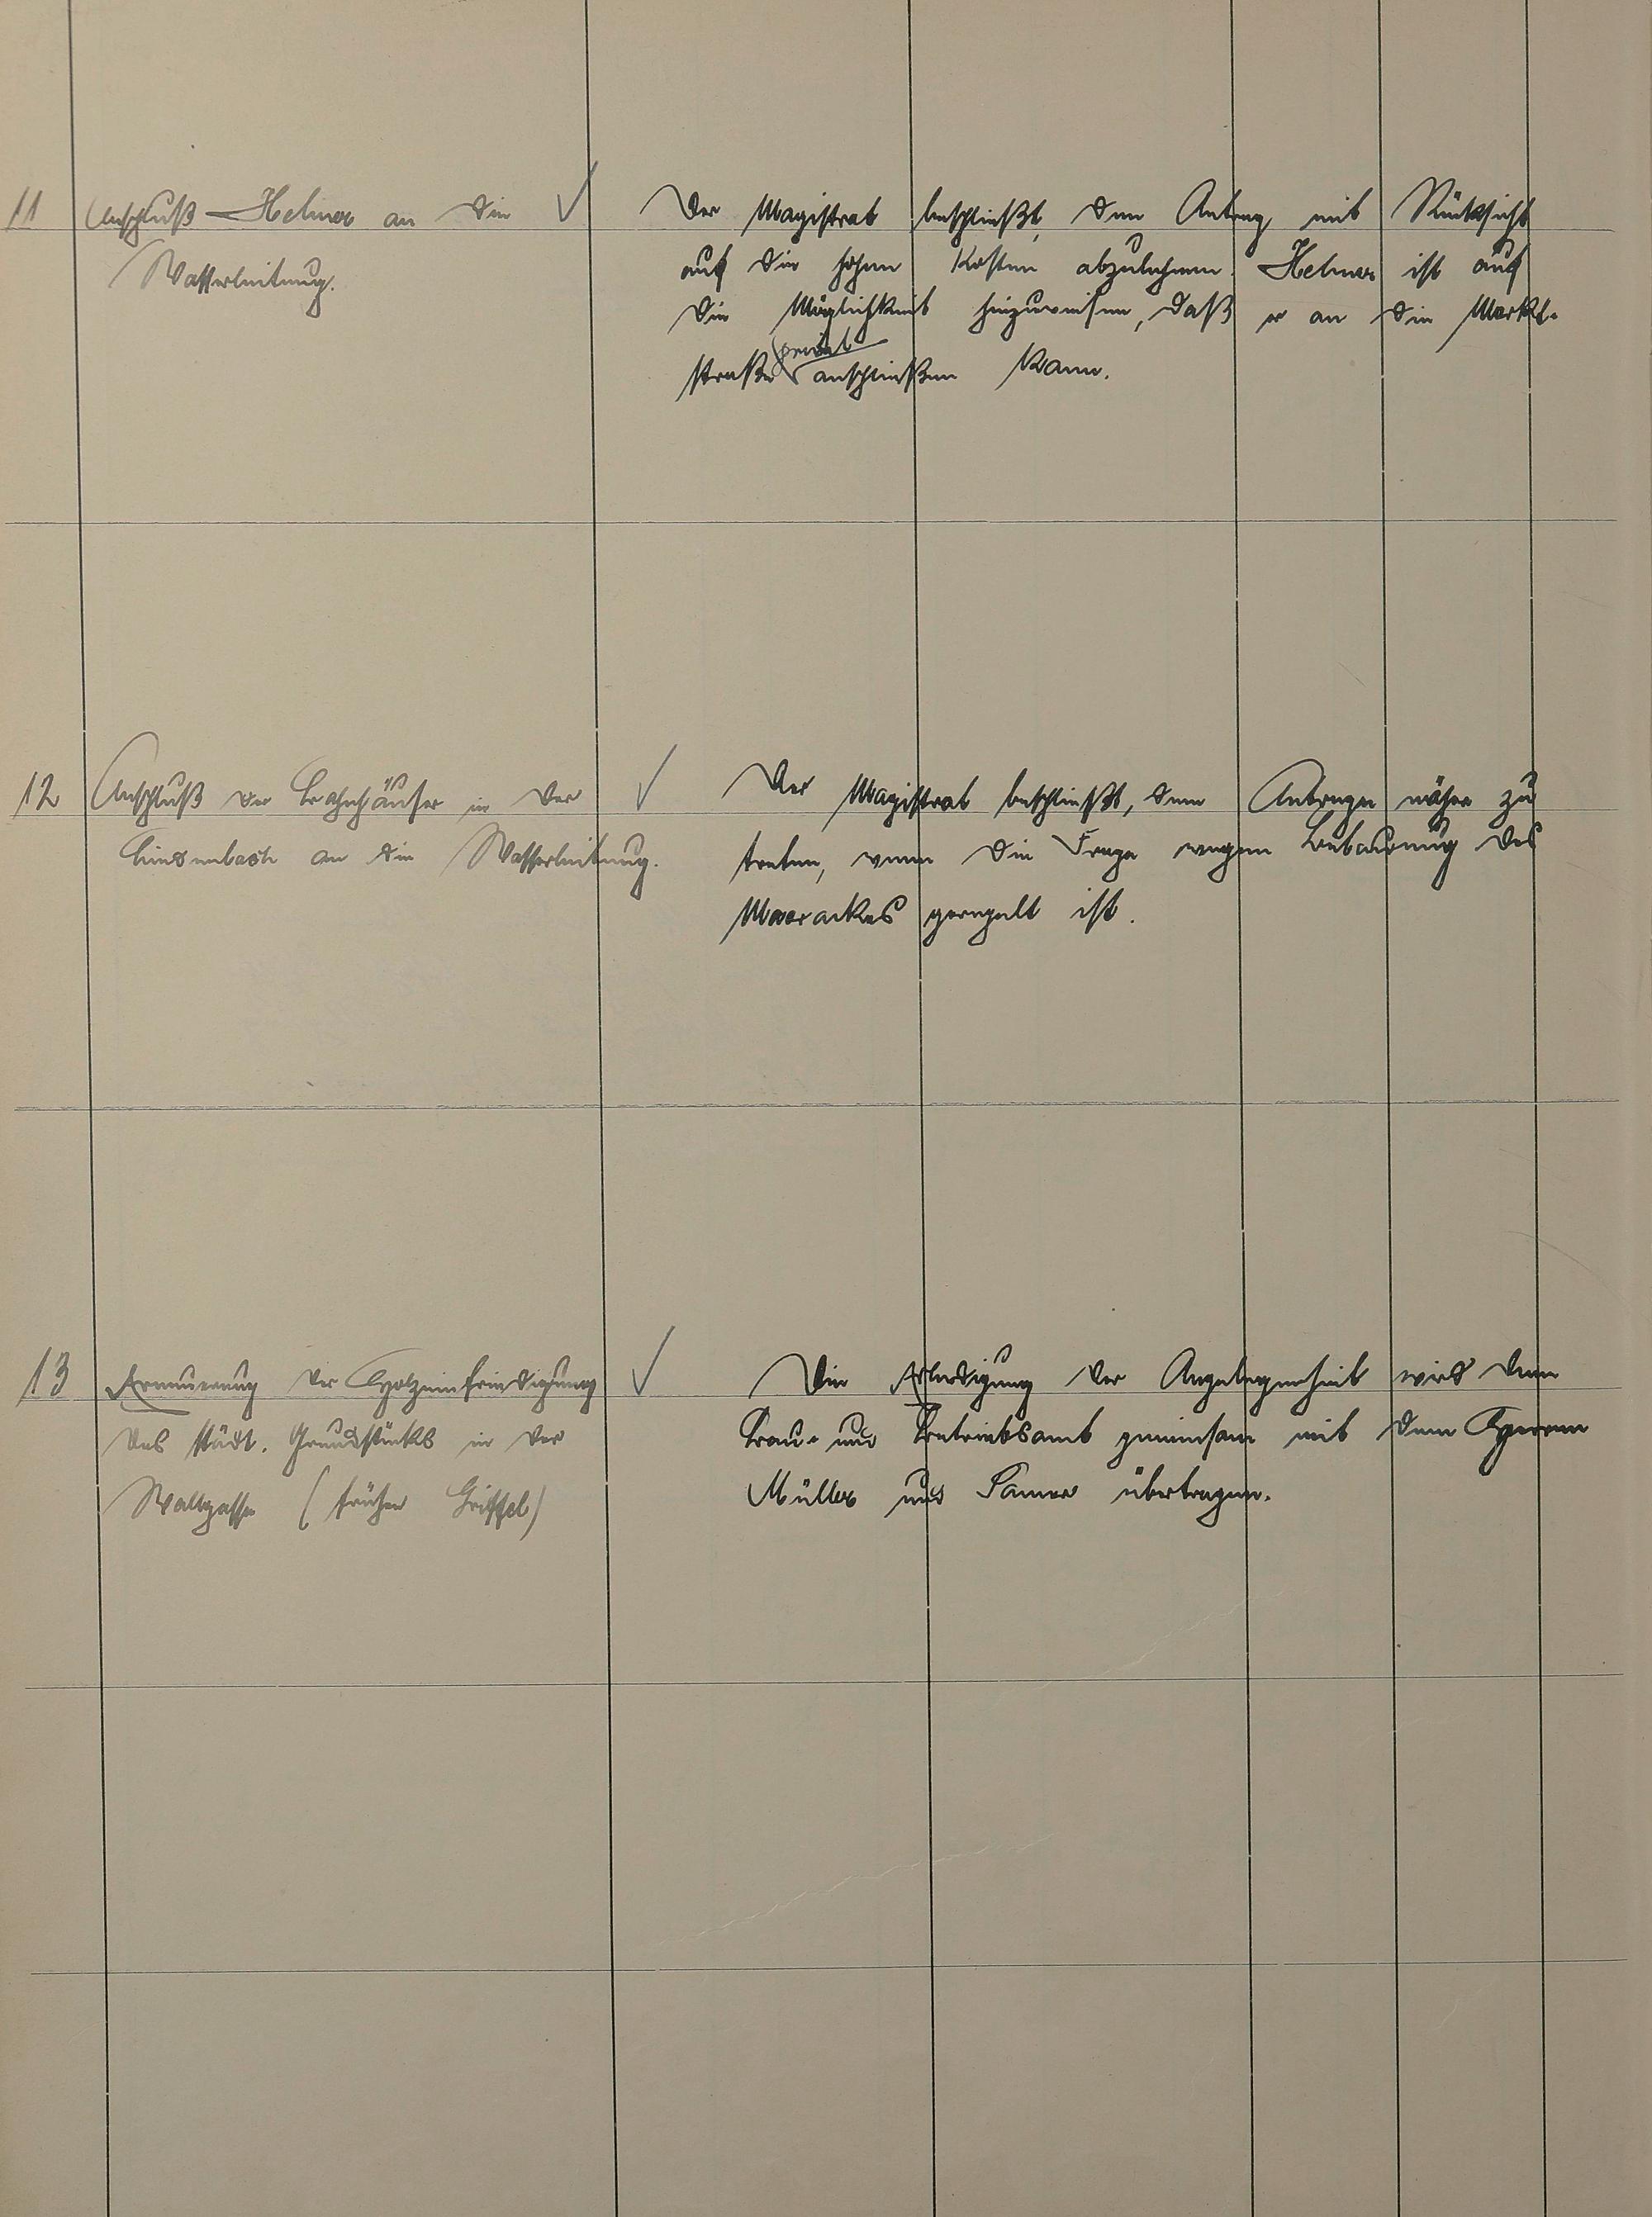 11 Anschluß Helmer an die ✓
Wasserleitung.
Der Magistrat beschließt, den Antrag mit Rücksicht
auf die hohen Kosten abzulehnen. Helmer ist auf
die Möglichkeit hinzuweisen, daß er an die Markt-
privat
straße anschließen kann.
12 Anschluß der Bahnhäuser in der ✓
an die Wasserleitung.
Der Magistrat beschließt, dem Antrage näher zu
treten, wenn die Frage wegen Bebauung des
geregelt ist.
13 Erneuerung der Holzeinfriedigung ✓
des städt. Grundstücks in der
Wallgasse (früher Griffel)
Die Erledigung der Angelegenheit wird dem
Bau- und Betriebsamt gemeinsam mit dem Herren
Müller und übertragen.